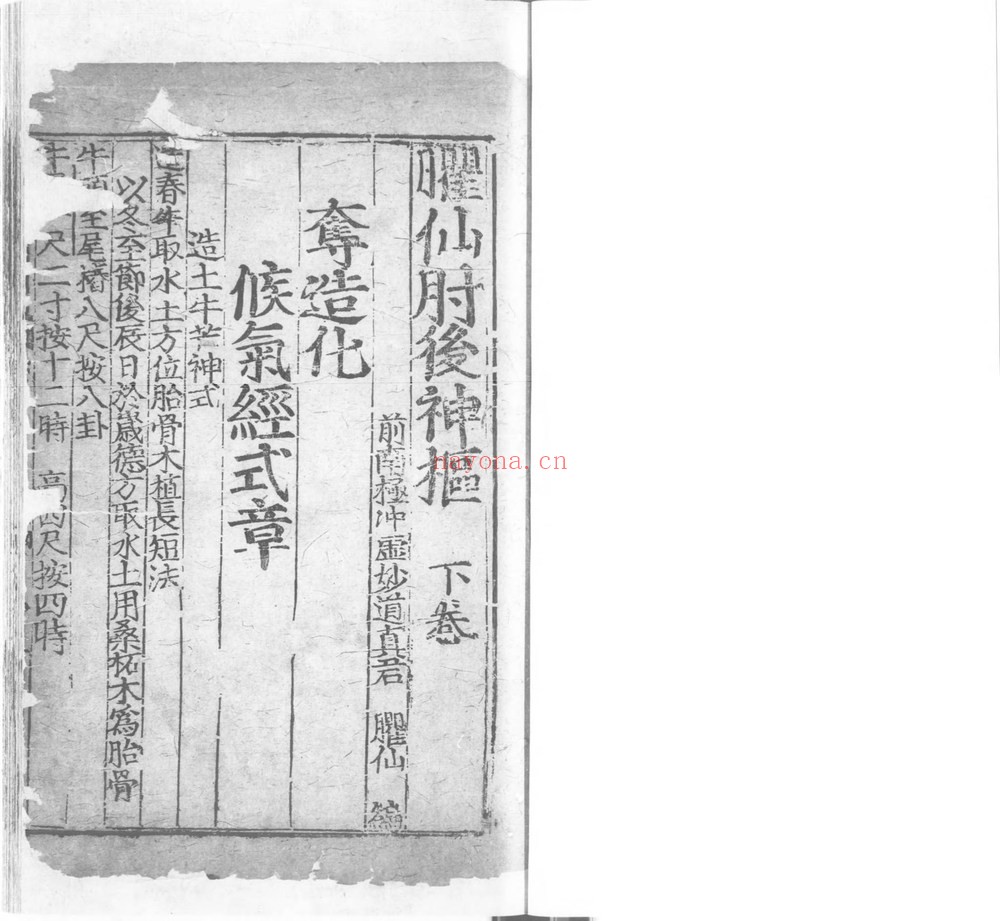 臞仙肘後神樞 下卷
前南極冲虛妙道真君 臞仙 編
奪造化
候氣經式章
造土牛芒神式
春牛取水土方位胎骨木植長短法
以冬至節後辰日於歲德方取水土用桑柘木為胎骨
牛 至尾樁八尺按八卦
尺二寸按十二時 高四尺按四時
nayona.cn